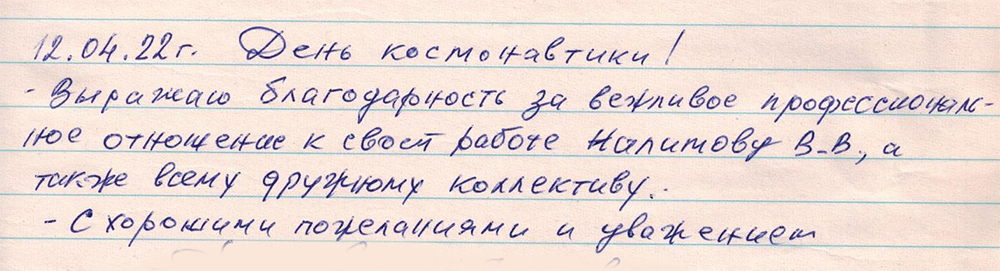 12.04.22г. День космонавтики!
- Выражаю благодарность за вежливое профессиональ-
ное отношение к своей работе Налимову В.В., а
также всему дружному коллективу.
- С хорошими пожеланиями и уважением